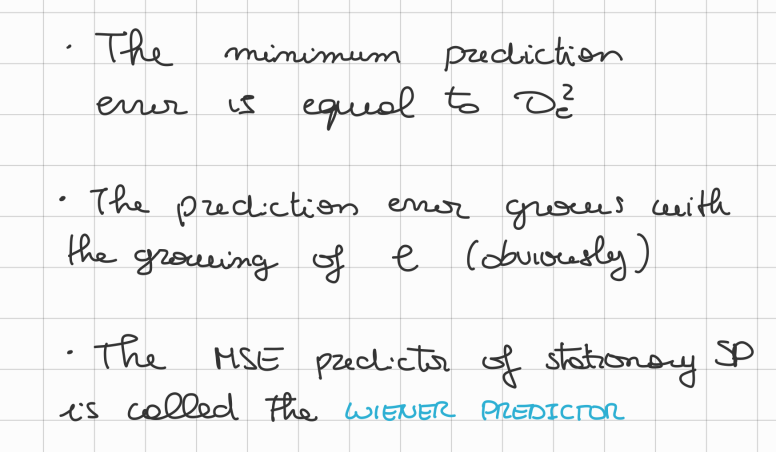 · The minimum prediction
error is equal to σ_ε^2
· The prediction error grows with
the growing of ℓ (obviously)
· The MSE predictor of stationary SP
is called the WIENER PREDICTOR